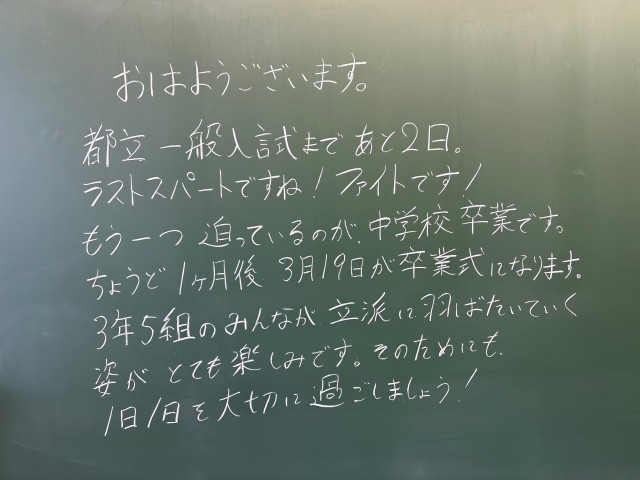 おはようございます。
都立一般入試まであと2日。
ラストスパートですね!ファイトです!
もう一つ迫っているのが、中学校卒業です。
ちょうど1ヶ月後3月19日が卒業式になります。
3年5組のみんなが立派に羽ばたいていく
姿がとても楽しみです。そのためにも、
1日1日を大切に過ごしましょう!